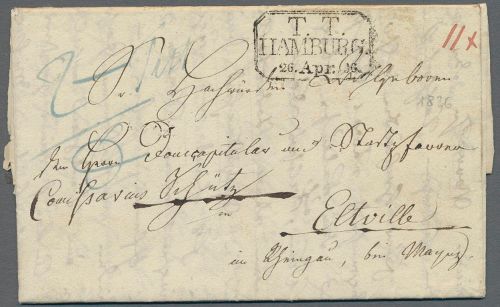 T. T.
HAMBURG.
26. Apr. 36.
11x
Sr. Hochwürden Hochwohlgeboren
1836
dem Herrn Domcapitular und Stadtpfarrer
Comissarius Schütz
in
Eltville
im Rheingau, bei Maynz